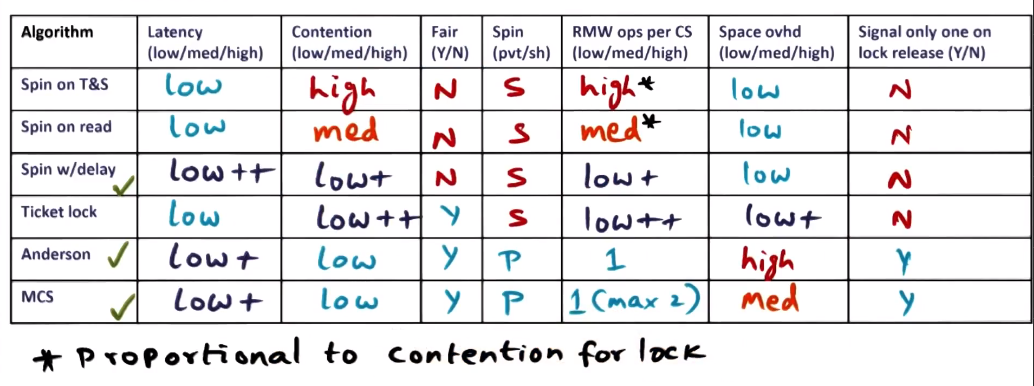 Algorithm Latency (low/med/high) Contention (low/med/high) Fair (Y/N) Spin (pvt/sh) RMW ops per CS (low/med/high) Space ovhd (low/med/high) Signal only one on lock release (Y/N)
Spin on T&S low high N S high* low N
Spin on read low med N S med* low N
Spin w/delay low++ low+ N S low+ low N
Ticket lock low low++ Y S low++ low+ N
Anderson low+ low Y P 1 high Y
MCS low+ low Y P 1 (max 2) med Y
* Proportional to contention for lock